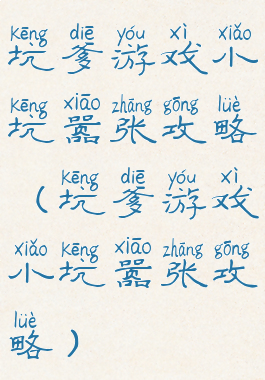 kēng diē yóu xì xiǎo
坑爹游戏小
kēng xiāo zhāng gōng lüè
坑嚣张攻略
kēng diē yóu xì
（坑爹游戏
xiǎo kēng xiāo zhāng gōng
小坑嚣张攻
lüè
略）